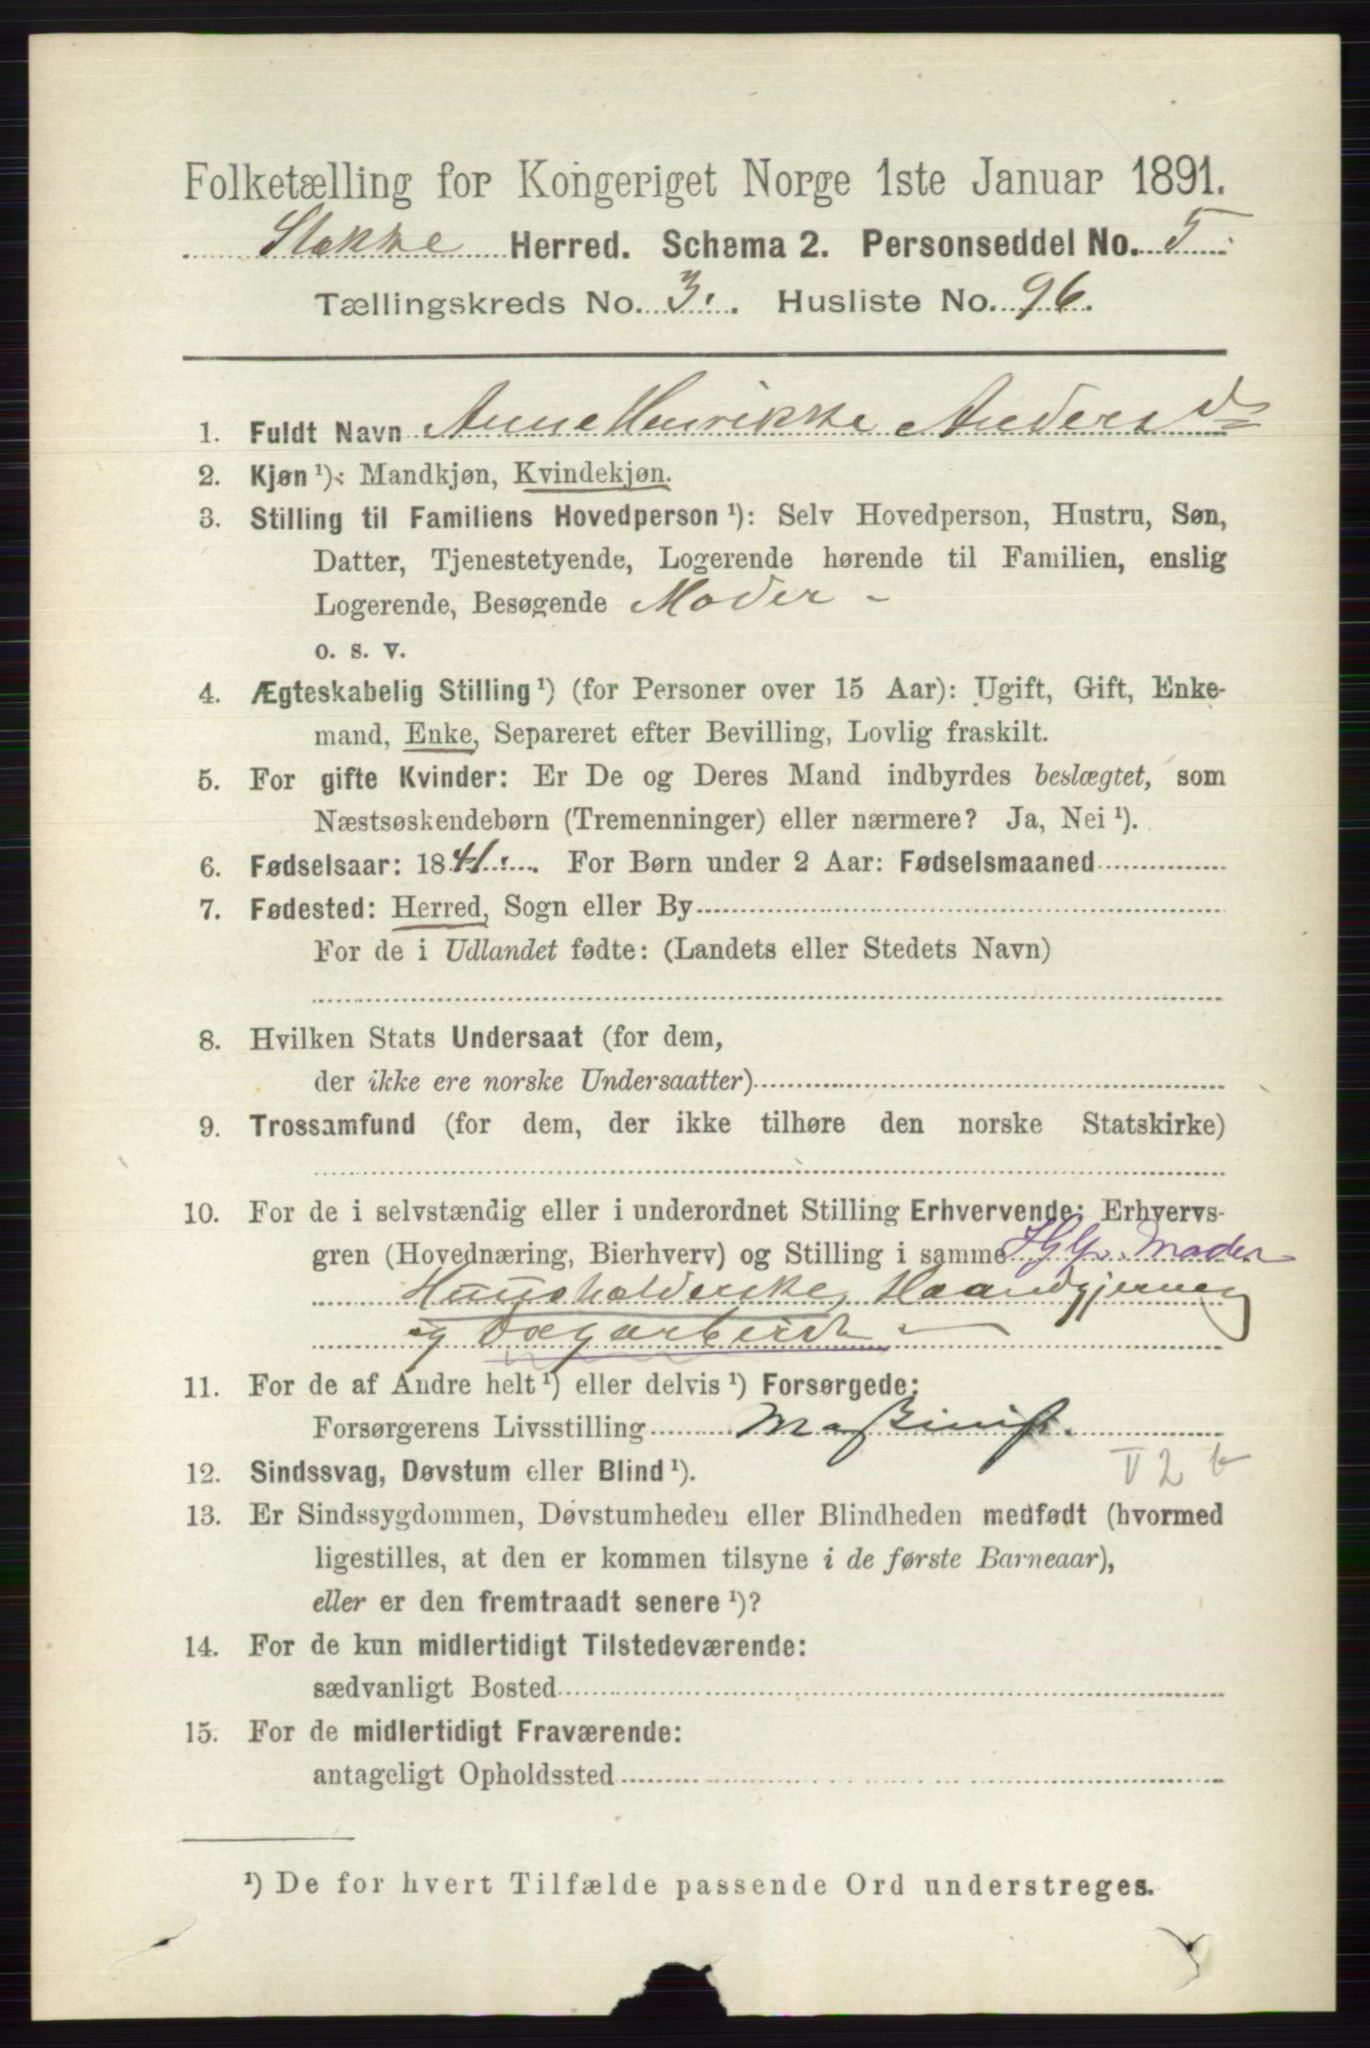 Folketælling for Kongeriget Norge 1ste Januar 1891.
Stokke Herred. Schema 2. Personseddel No. 5
Tællingskreds No. 3. Husliste No. 96.
1. Fuldt Navn Anne Henrikke Andersd
2. Kjøn ¹): Mandkjøn, Kvindekjøn.
3. Stilling til Familiens Hovedperson ¹): Selv Hovedperson, Hustru, Søn,
Datter, Tjenestetyende, Logerende hørende til Familien, enslig
Logerende, Besøgende Moder -
o. s. v.
4. Ægteskabelig Stilling ¹) (for Personer over 15 Aar): Ugift, Gift, Enke-
mand, Enke, Separeret efter Bevilling, Lovlig fraskilt.
5. For gifte Kvinder: Er De og Deres Mand indbyrdes beslægtet, som
Næstsøskendebørn (Tremenninger) eller nærmere? Ja, Nei ¹).
6. Fødselsaar: 1841. For Børn under 2 Aar: Fødselsmaaned
7. Fødested: Herred, Sogn eller By
For de i Udlandet fødte: (Landets eller Stedets Navn)
8. Hvilken Stats Undersaat (for dem,
der ikke ere norske Undersaatter)
9. Trossamfund (for dem, der ikke tilhøre den norske Statskirke)
10. For de i selvstændig eller i underordnet Stilling Erhvervende: Erhvervs-
gren (Hovednæring, Bierhverv) og Stilling i samme Moder
Huusholderske, Haandgjerning
og Dagarbeide
11. For de af Andre helt ¹) eller delvis ¹) Forsørgede:
Forsørgerens Livsstilling Maskinist.
12. Sindssvag, Døvstum eller Blind ¹).
13. Er Sindssygdommen, Døvstumheden eller Blindheden medfødt (hvormed
ligestilles, at den er kommen tilsyne i de første Barneaar),
eller er den fremtraadt senere ¹)?
14. For de kun midlertidigt Tilstedeværende:
sædvanligt Bosted
15. For de midlertidigt Fraværende:
antageligt Opholdssted
¹) De for hvert Tilfælde passende Ord understreges.